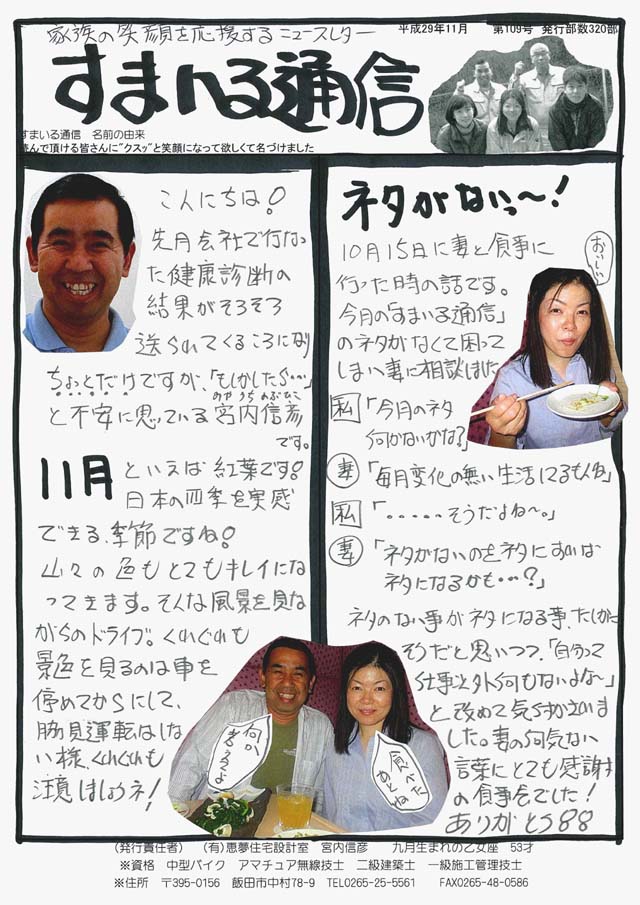 家族の笑顔を応援するニュースレター
平成29年11月　第109号　発行部数320部
すまいる通信
すまいる通信　名前の由来
読んで頂ける皆さんに"クスッ"と笑顔になって欲しくて名づけました
こんにちは!
先月会社で行なっ
た健康診断の
結果がそろそろ
送られてくるころになり
ちょっとだけですが、「もしかしたら…」
と不安に思っている宮内信彦
みやうちのぶひこ
です。
11月といえば紅葉です!
日本の四季を実感
できる、季節ですね!
山々の色もとてもキレイにな
ってきます。そんな風景を見な
がらのドライブ。くれぐれも
景色を見るのは車を
停めてからにして、
脇見運転はしな
い様、くれぐれも
注意しましょうネ!
ネタがないっ〜!
10月15日に妻と食事に
行った時の話です。
今月の「すまいる通信」
のネタがなくて困って
しまい妻に相談しました
おいしい
私「今月のネタ
何かないかな?」
妻「毎月変化の無い生活してるもんね」
私「・・・・・そうだよね〜。」
妻「ネタがないのをネタにすれば
ネタになるかも…?」
ネタのない事がネタになる事、たしかに
そうだと思いつつ、「自分って
仕事以外何もないよな〜」
と改めて気づかされま
した。妻の何気ない
言葉にとても感謝
の食事会でした!
ありがとう
何か考えろよ
食べたかとね
(発行責任者)　(有)恵夢住宅設計室　宮内信彦　九月生まれの乙女座　53才
※資格　中型バイク　アマチュア無線技士　二級建築士　一級施工管理技士
※住所　〒395-0156　飯田市中村78-9　TEL0265-25-5561　FAX0265-48-0586